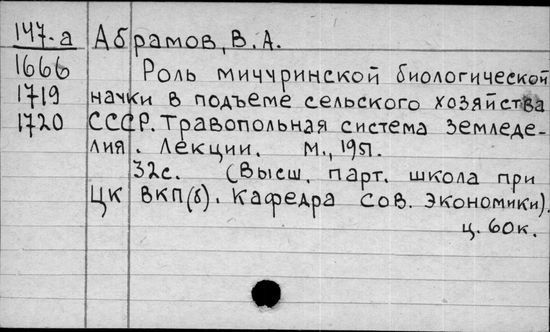 147-а Абрамов, В. А.
1666 Роль мичуринской биологической
1719 науки в подъеме сельского хозяйства
1720 СССР. Травопольная система земледе-
лия. Лекции. М., 1951.
32с. (Высш. парт. школа при
ЦК ВКП(б). Кафедра сов. экономики).
ц. 60к.